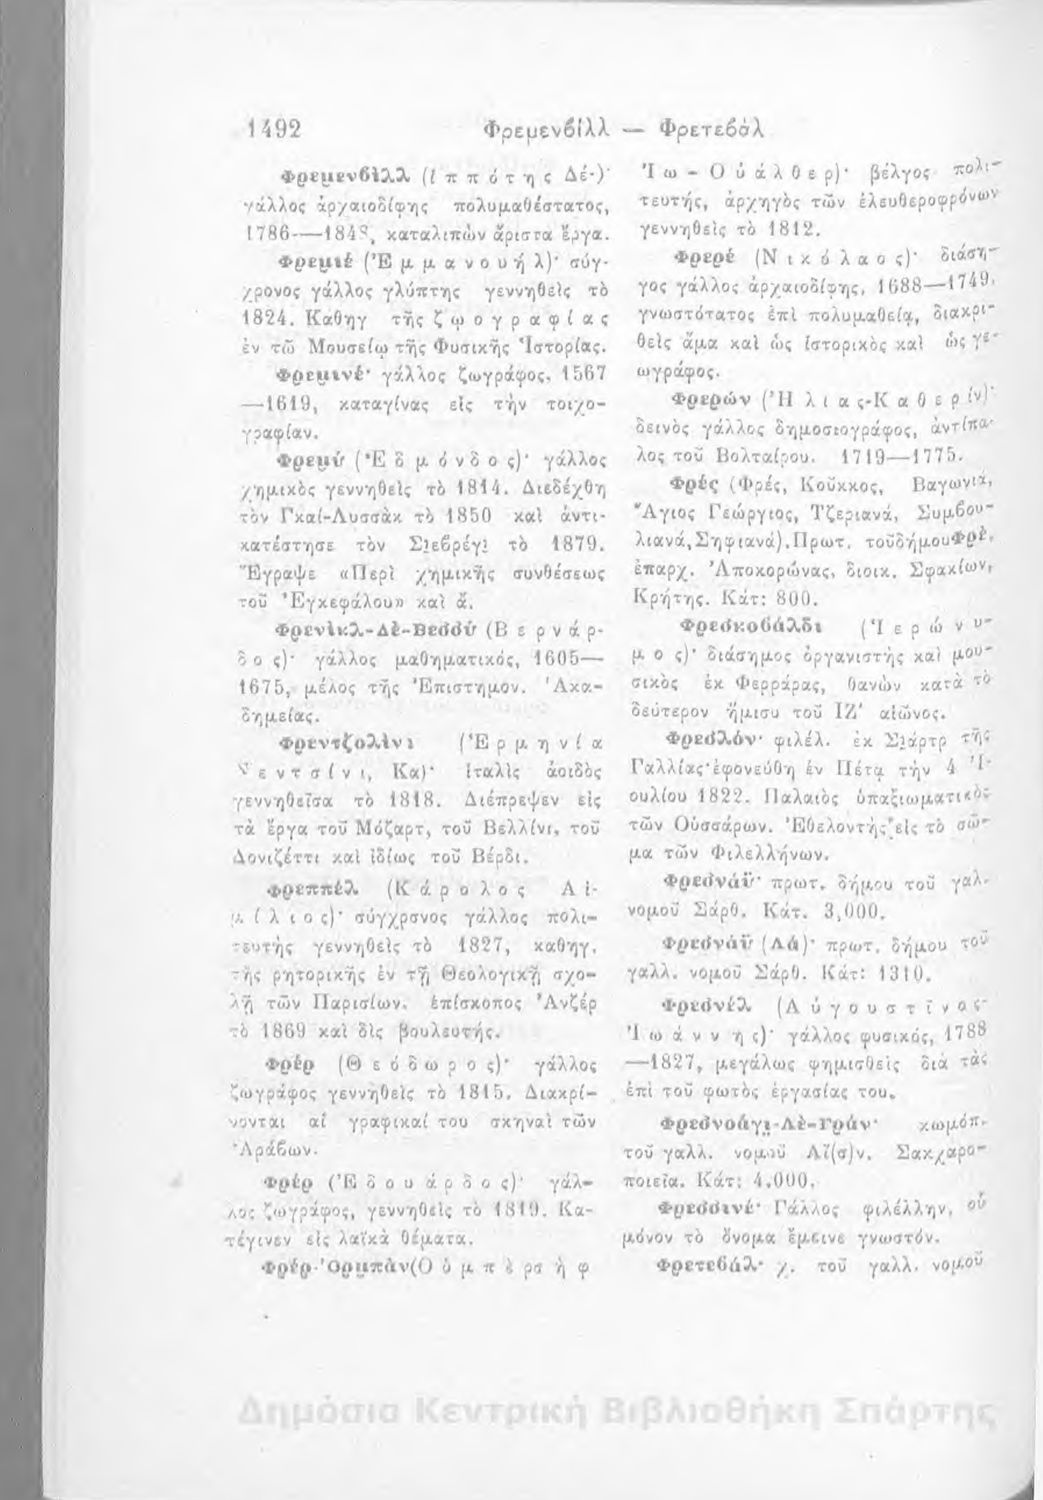 1492
Φρεμενβίλλ — Φρετεβάλ
Φρεμενβίλλ (Ἱππότης Δέ-)·
γάλλος ἀρχαιοδίφης πολυμαθέστατος,
1786—184, καταλιπὼν ἄριστα ἔργα.
Φρεμιέ (Ἐμμανουήλ)· σύγ-
χρονος γάλλος γλύπτης γεννηθεὶς τὸ
1824. Καθηγ τῆς ζῳογραφίας
ἐν τῷ Μουσείῳ τῆς Φυσικῆς Ἱστορίας.
Φρεμινέ· γάλλος ζωγράφος, 1567
—1619, καταγίνας εἰς τὴν τοιχο-
γραφίαν.
Φρεμύ (Ἐδμόνδος)· γάλλος
χημικὸς γεννηθεὶς τὸ 1814. Διεδέχθη
τὸν Γκαί-Λυσσὰκ τὸ 1850 καὶ ἀντι-
κατέστησε τὸν Σ]εβρέγ] τὸ 1879.
Ἔγραψε «Περὶ χημικῆς συνθέσεως
τοῦ Ἐγκεφάλου» καὶ ἄ.
Φρενὶκλ-Δὲ-Βεσσύ (Βερνάρ-
δος)· γάλλος μαθηματικός, 1605—
1675, μέλος τῆς Ἐπιστημον. Ἀκα-
δημείας.
Φρεντζολίνι (Ἑρμηνία
Νεντσίνι, Κα)· ἰταλὶς ἀοιδὸς
γεννηθεῖσα τὸ 1818. Διέπρεψεν εἰς
τὰ ἔργα τοῦ Μόζαρτ, τοῦ Βελλίνι, τοῦ
Δονιζέττι καὶ ἰδίως τοῦ Βέρδι.
Φρεππέλ (Κάρολος Αἰ-
μίλιος)· σύγχρονος γάλλος πολι-
τευτὴς γεννηθεὶς τὸ 1827, καθηγ.
τῆς ρητορικῆς ἐν τῇ Θεολογικῇ σχο-
λῇ τῶν Παρισίων, ἐπίσκοπος Ἀνζέρ
τὸ 1869 καὶ δὶς βουλευτής.
Φρέρ (Θεόδωρος)· γάλλος
ζωγράφος γεννηθεὶς τὸ 1815. Διακρί-
νονται αἱ γραφικαί του σκηναὶ τῶν
Ἀράβων.
Φρέρ (Ἐδουάρδος)· γάλ-
λος ζωγράφος, γεννηθεὶς τὸ 1819. Κα-
τέγινεν εἰς λαϊκὰ θέματα.
Φρέρ-Ὀρμπὰν (Οὑμπὲρ ἡ φ
Ἰω-Οὐάλθερ)· βέλγος πολι-
τευτής, ἀρχηγὸς τῶν ἐλευθεροφρόνων
γεννηθεὶς τὸ 1812.
Φρερέ (Νικόλαος)· διάση-
γος γάλλος ἀρχαιοδίφης, 1688—1749,
γνωστότατος ἐπὶ πολυμαθείᾳ, διακρι-
θεὶς ἅμα καὶ ὡς ἱστορικὸς καὶ ὡς γε-
ωγράφος.
Φρερών (Ἠλιας-Καθερίν)·
δεινὸς γάλλος δημοσιογράφος, ἀντίπα-
λος τοῦ Βολταίρου. 1719—1775.
Φρές (Φρές, Κούκκος, Βαγωνιά,
Ἅγιος Γεώργιος, Τζεριανά, Συμβου-
λιανά, Σηφιανά). Πρωτ. τοῦ δήμου Φρέ,
ἐπαρχ. Ἀποκορώνας, διοικ. Σφακίων,
Κρήτης. Κάτ: 800.
Φρεσκοβάλδι (Ἱερώνυ-
μος)· διάσημος ὀργανιστὴς καὶ μου-
σικὸς ἐκ Φερράρας, θανὼν κατὰ τὸ
δεύτερον ἥμισυ τοῦ ΙΖ' αἰῶνος.
Φρεσλόν· φιλέλ. ἐκ Σ]άρτρ τῆς
Γαλλίας· ἐφονεύθη ἐν Πέτᾳ τὴν 4 Ἰ-
ουλίου 1822. Παλαιὸς ὑπαξιωματικὸς
τῶν Οὑσσάρων. Ἐθελοντὴς εἰς τὸ σῶ-
μα τῶν Φιλελλήνων.
Φρεσνάϋ· πρωτ. δήμου τοῦ γαλ-
νομοῦ Σάρθ. Κάτ. 3,000.
Φρεσνάϋ (Λά)· πρωτ. δήμου τοῦ
γαλλ. νομοῦ Σάρθ. Κάτ: 1310.
Φρεσνέλ (Αὐγουστῖνος
Ἰωάννης)· γάλλος φυσικός, 1788
—1827, μεγάλως φημισθεὶς διὰ τὰς
ἐπὶ τοῦ φωτὸς ἐργασίας του.
Φρεσνοάγ]-Λὲ-Γράν· κωμόπ.
τοῦ γαλλ. νομοῦ Αἴ(σ)ν. Σακχαρο-
ποιεῖα. Κάτ: 4,000.
Φρεσσινέ· Γάλλος φιλέλλην, οὗ
μόνον τὸ ὄνομα ἔμεινε γνωστόν.
Φρετεβάλ· χ. τοῦ γαλλ. νομοῦ
Δημόσια Κεντρική Βιβλιοθήκη Σπάρτης